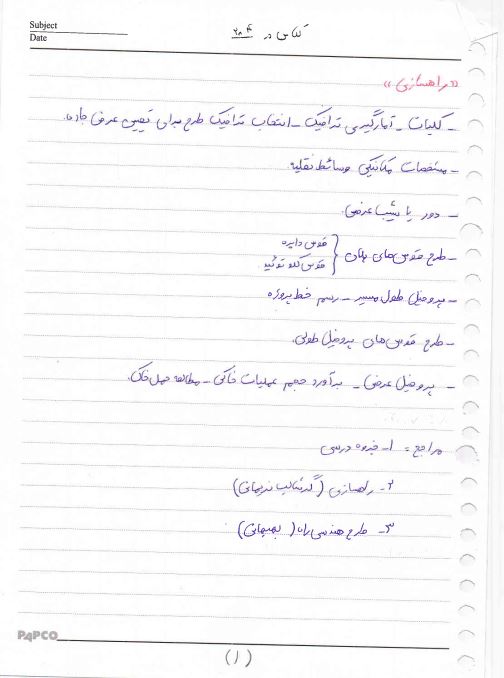 Subject
Date
کلاس در ۲۰۴
«راهسازی»
- کلیات - آمارگیری ترافیک - انتخاب ترافیک طرح برای تعیین عرض جاده.
- مشخصات مکانیکی وسائط نقلیه
- دور یا شیب عرضی.
- طرح قوس‌های پلان { قوس دایره
قوس کلوتوئید
- پروفیل طول مسیر - رسم خط پروژه
- طرح قوس‌های پروفیل طولی.
- پروفیل عرضی - برآورد حجم عملیات خاکی - مطالعه حمل خاک.
مراجع : ۱- جزوه درسی
۲- راهسازی (گرشاسب نریمانی)
۳- طرح هندسی راه (بهبهانی)
PAPCO
(۱)